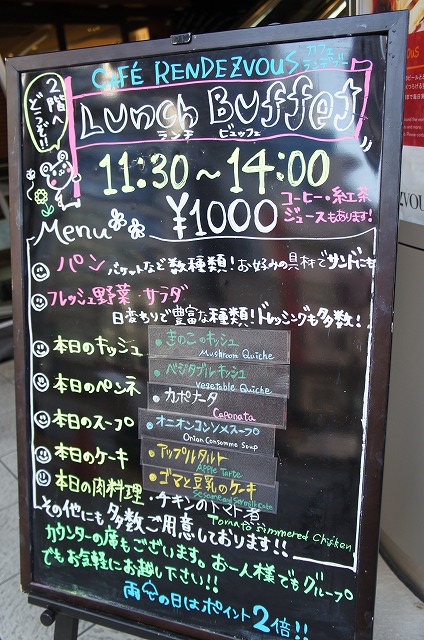 CAFÉ RENDEZVOUS カフェ ランデヴー
2階へどうぞ!!
Lunch Buffet
ランチ ビュッフェ
11:30～14:00
¥1000
コーヒー・紅茶
ジュースもあります!
Menu
パン バケットなど数種類!お好みの具材でサンドにも
フレッシュ野菜・サラダ
日変わりで豊富な種類!ドレッシングも多数!
本日のキッシュ
きのこのキッシュ
Mushroom Quiche
ベジタブルキッシュ
Vegetable Quiche
本日のペンネ
カポナータ
Caponata
本日のスープ
オニオンコンソメスープ
Onion Consomme Soup
本日のケーキ
アップルタルト
Apple Tarte
ゴマと豆乳のケーキ
本日の肉料理
・チキンのトマト煮
Tomato simmered Chicken
その他にも多数ご用意しております!!
カウンターの席もございます。お一人様でもグループ
でもお気軽にお越し下さい!!
雨の日はポイント2倍!!